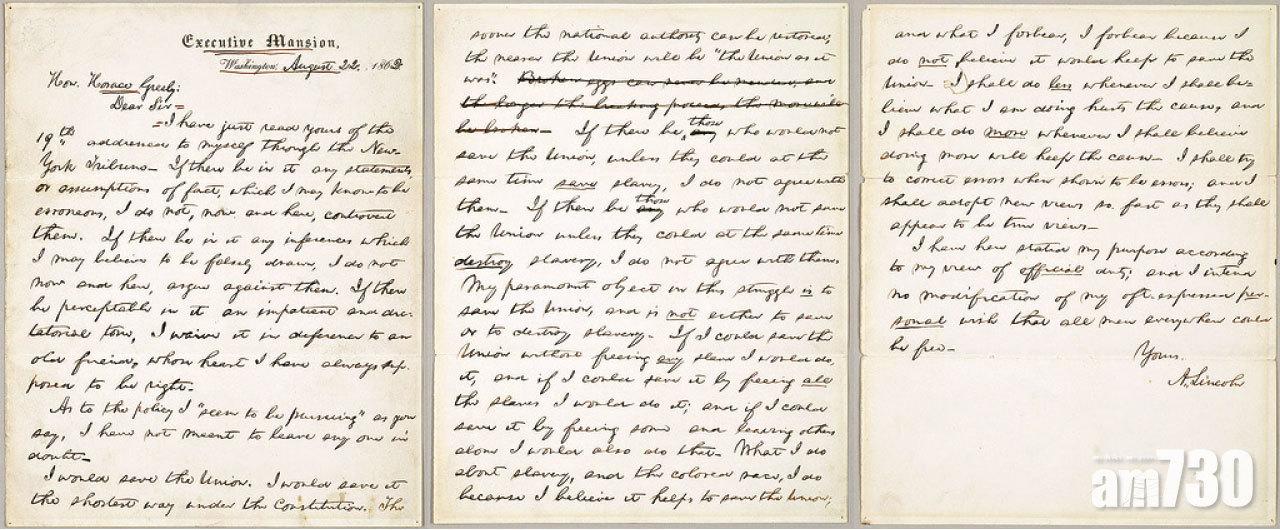 Executive Mansion,
Washington, August 22, 1862
Hon. Horace Greely:
Dear Sir
I have just read yours of the
19th addressed to myself through the New-
York Tribune. If there be in it any statements,
or assumptions of fact, which I may know to be
erroneous, I do not, now and here, controvert
them. If there be in it any inferences which
I may believe to be falsely drawn, I do not
now and here, argue against them. If there
be perceptable in it an impatient and dic-
tatorial tone, I waive it in deference to an
old friend, whose heart I have always sup-
posed to be right.
As to the policy I "seem to be pursuing" as you
say, I have not meant to leave any one in
doubt.
I would save the Union. I would save it
the shortest way under the Constitution. The
sooner the national authority can be restored,
the nearer the Union will be "the Union as it
was." Broken eggs can never be mended, and
the longer the breaking proceeds the more will
be broken. If there be those any who would not
save the Union, unless they could at the
same time save slavery, I do not agree with
them. If there be those any who would not save
the Union unless they could at the same time
destroy slavery, I do not agree with them.
My paramount object in this struggle is to
save the Union, and is not either to save
or to destroy slavery. If I could save the
Union without freeing any slave I would do
it, and if I could save it by freeing all
the slaves I would do it; and if I could
save it by freeing some and leaving others
alone I would also do that. What I do
about slavery, and the colored race, I do
because I believe it helps to save the Union,
and what I forbear, I forbear because I
do not believe it would help to save the
Union. I shall do less whenever I shall be-
lieve what I am doing hurts the cause, and
I shall do more whenever I shall believe
doing more will help the cause. I shall try
to correct errors when shown to be errors; and I
shall adopt new views so fast as they shall
appear to be true views.
I have here stated my purpose according
to my view of official duty; and I intend
no modification of my oft-expressed per-
sonal wish that all men everywhere could
be free.
Yours,
A. Lincoln
am730